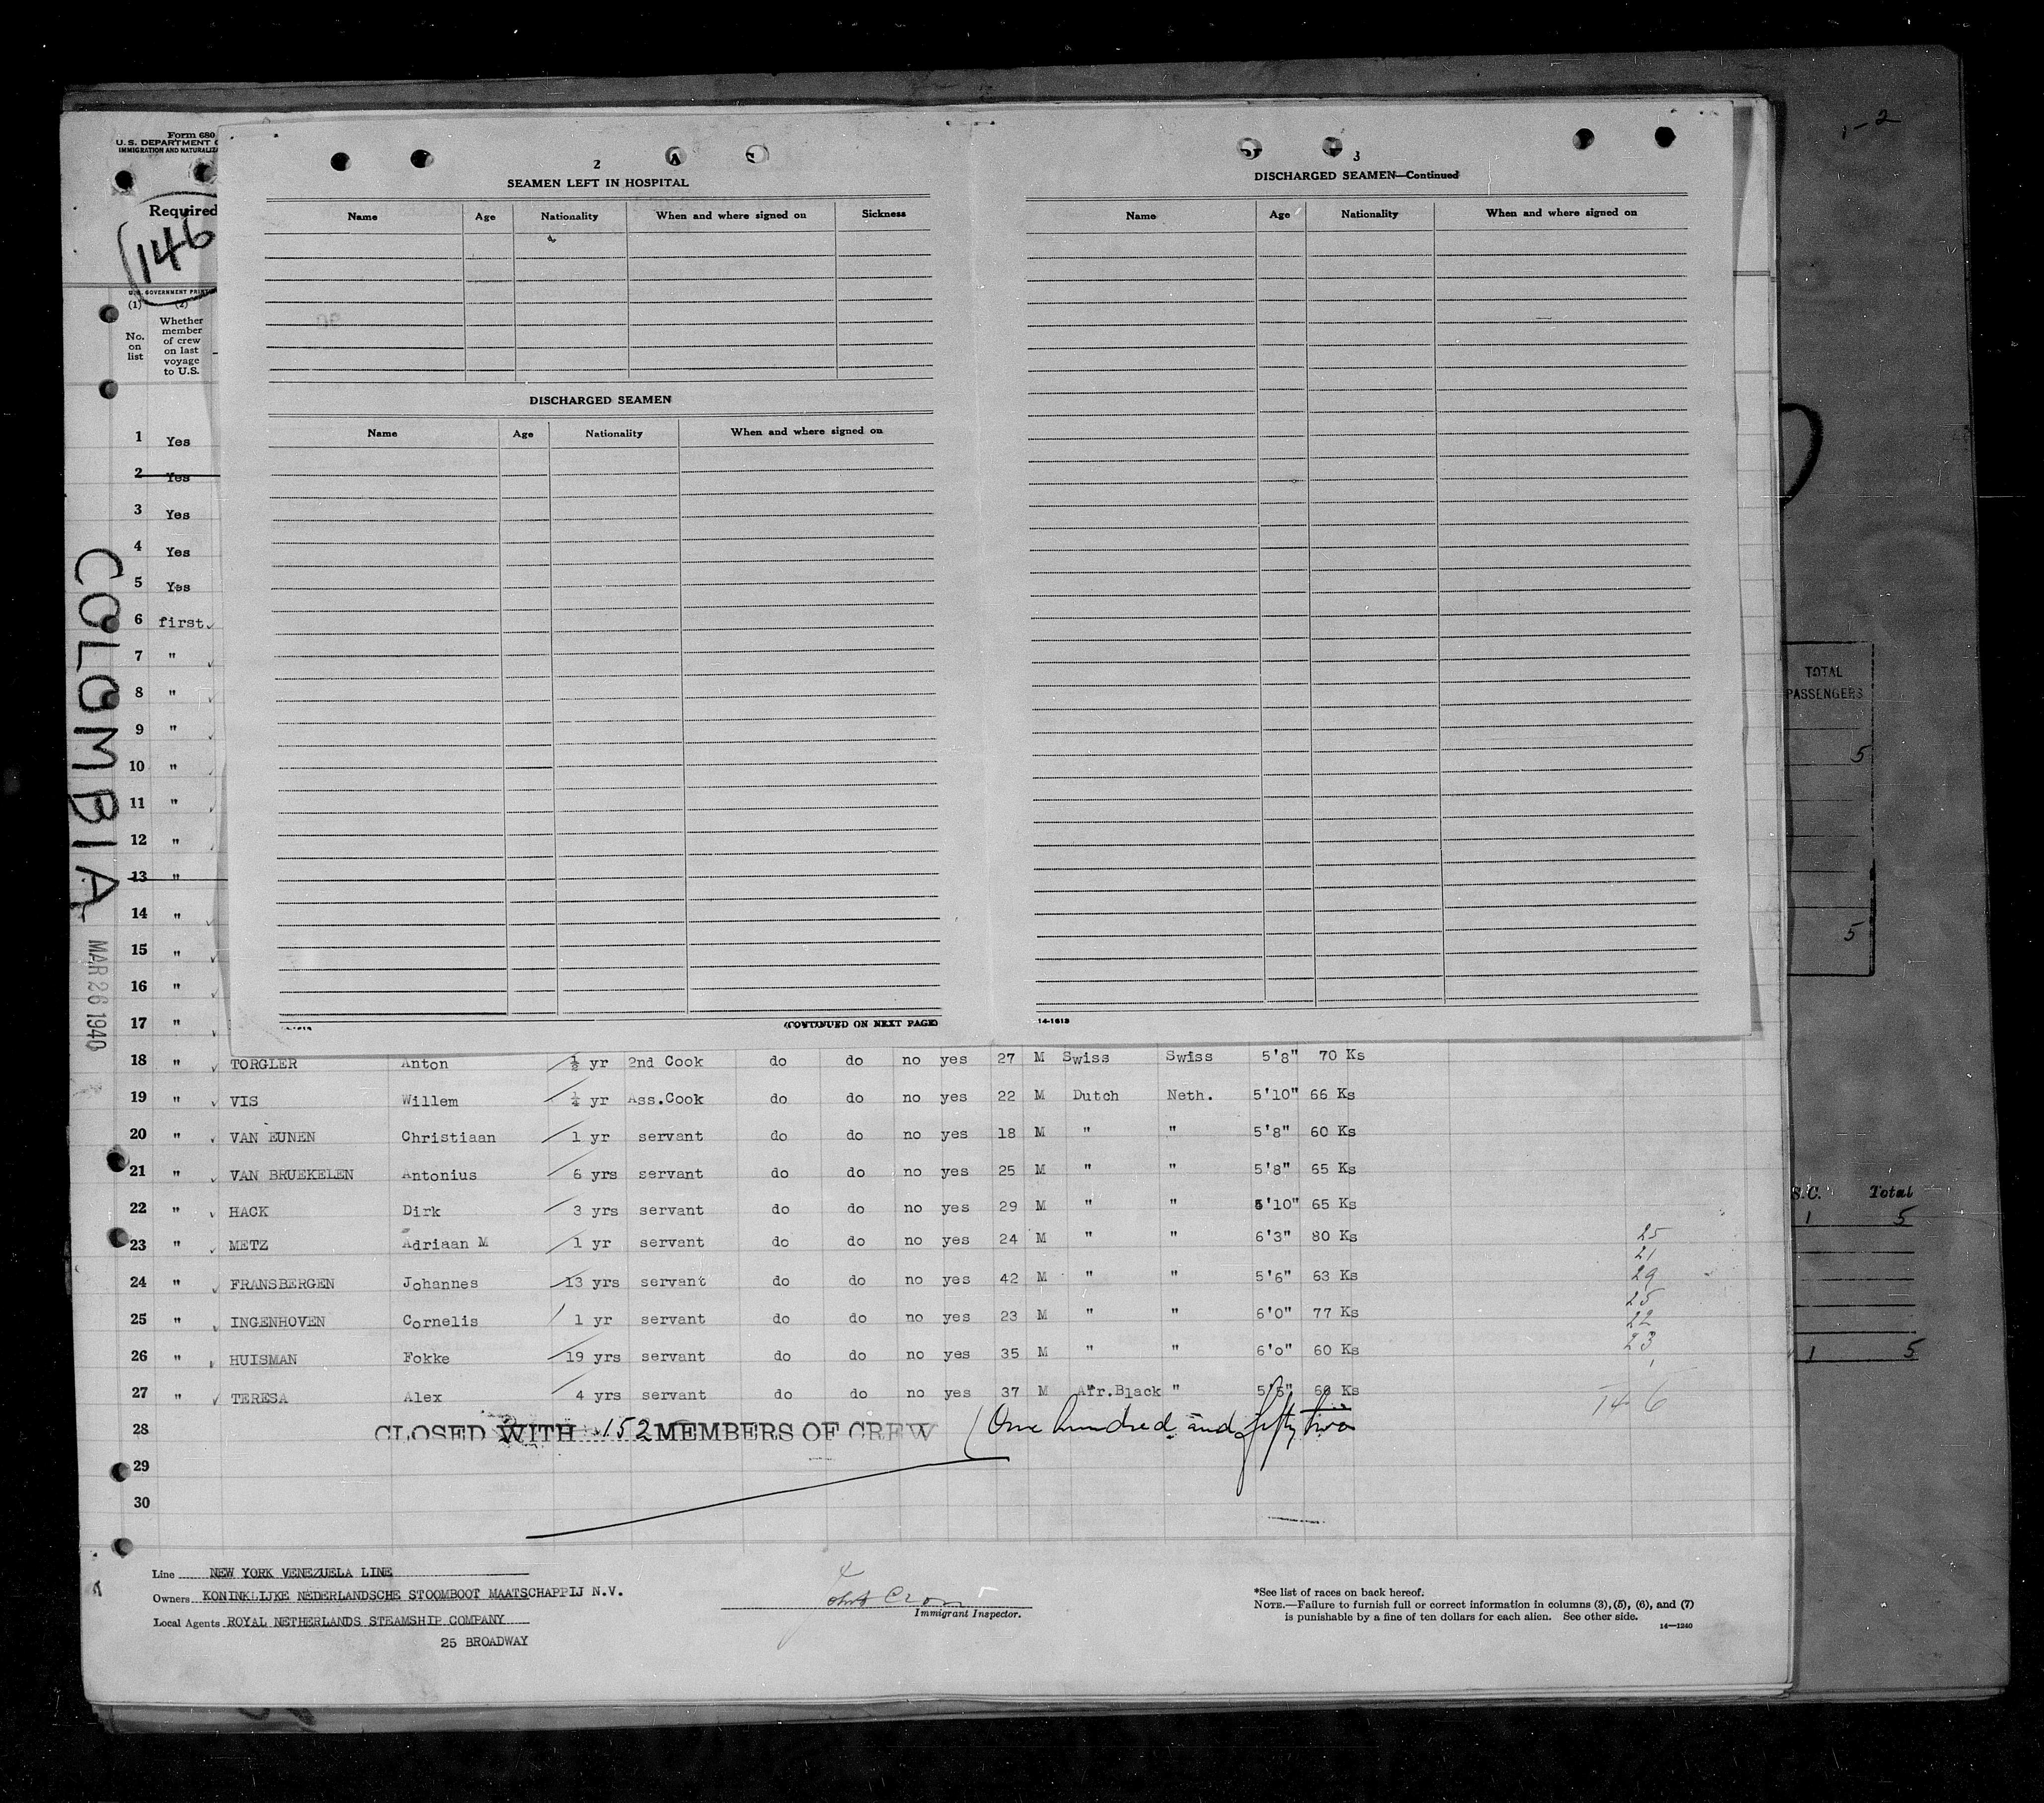 1-2
Form 680
U.S. DEPARTMENT
IMMIGRATION AND
Required
146
(1) (2)
No. on list
Whether member of crew on last voyage to U.S.
2
SEAMEN LEFT IN HOSPITAL
Name Age Nationality When and where signed on Sickness
DISCHARGED SEAMEN
Name Age Nationality When and where signed on
(CONTINUED ON NEXT PAGE)
3
DISCHARGED SEAMEN—Continued
Name Age Nationality When and where signed on
14-1613
COLOMBIA
MAR 26 1940
1 Yes
2 Yes
3 Yes
4 Yes
5 Yes
6 first
7 "
8 "
9 "
10 "
11 "
12 "
13 "
14 "
15 "
16 "
17 "
18 " TORGLER Anton ½ yr 2nd Cook do do no yes 27 M Swiss Swiss 5'8" 70 Ks
19 " VIS Willem ¼ yr Ass.Cook do do no yes 22 M Dutch Neth. 5'10" 66 Ks
20 " VAN EUNEN Christiaan 1 yr servant do do no yes 18 M " " 5'8" 60 Ks
21 " VAN BRUEKELEN Antonius 6 yrs servant do do no yes 25 M " " 5'8" 65 Ks
22 " HACK Dirk 3 yrs servant do do no yes 29 M " " 5'10" 65 Ks
23 " METZ Adriaan M 1 yr servant do do no yes 24 M " " 6'3" 80 Ks
24 " FRANSBERGEN Johannes 13 yrs servant do do no yes 42 M " " 5'6" 63 Ks
25 " INGENHOVEN Cornelis 1 yr servant do do no yes 23 M " " 6'0" 77 Ks
26 " HUISMAN Fokke 19 yrs servant do do no yes 35 M " " 6'o" 60 Ks
27 " TERESA Alex 4 yrs servant do do no yes 37 M Afr.Black " Ks
28 CLOSED WITH 152 MEMBERS OF CREW (One hundred and fifty two
29
30
25
21
29
25
22
23
146
Line NEW YORK VENEZUELA LINE
Owners KONINKLIJKE NEDERLANDSCHE STOOMBOOT MAATSCHAPPIJ N.V.
Local Agents ROYAL NETHERLANDS STEAMSHIP COMPANY
25 BROADWAY
Immigrant Inspector.
*See list of races on back hereof.
NOTE.—Failure to furnish full or correct information in columns (3), (5), (6), and (7)
is punishable by a fine of ten dollars for each alien. See other side.
14—1240
TOTAL
PASSENGERS
5
5
S.C. Total
1 5
1 5